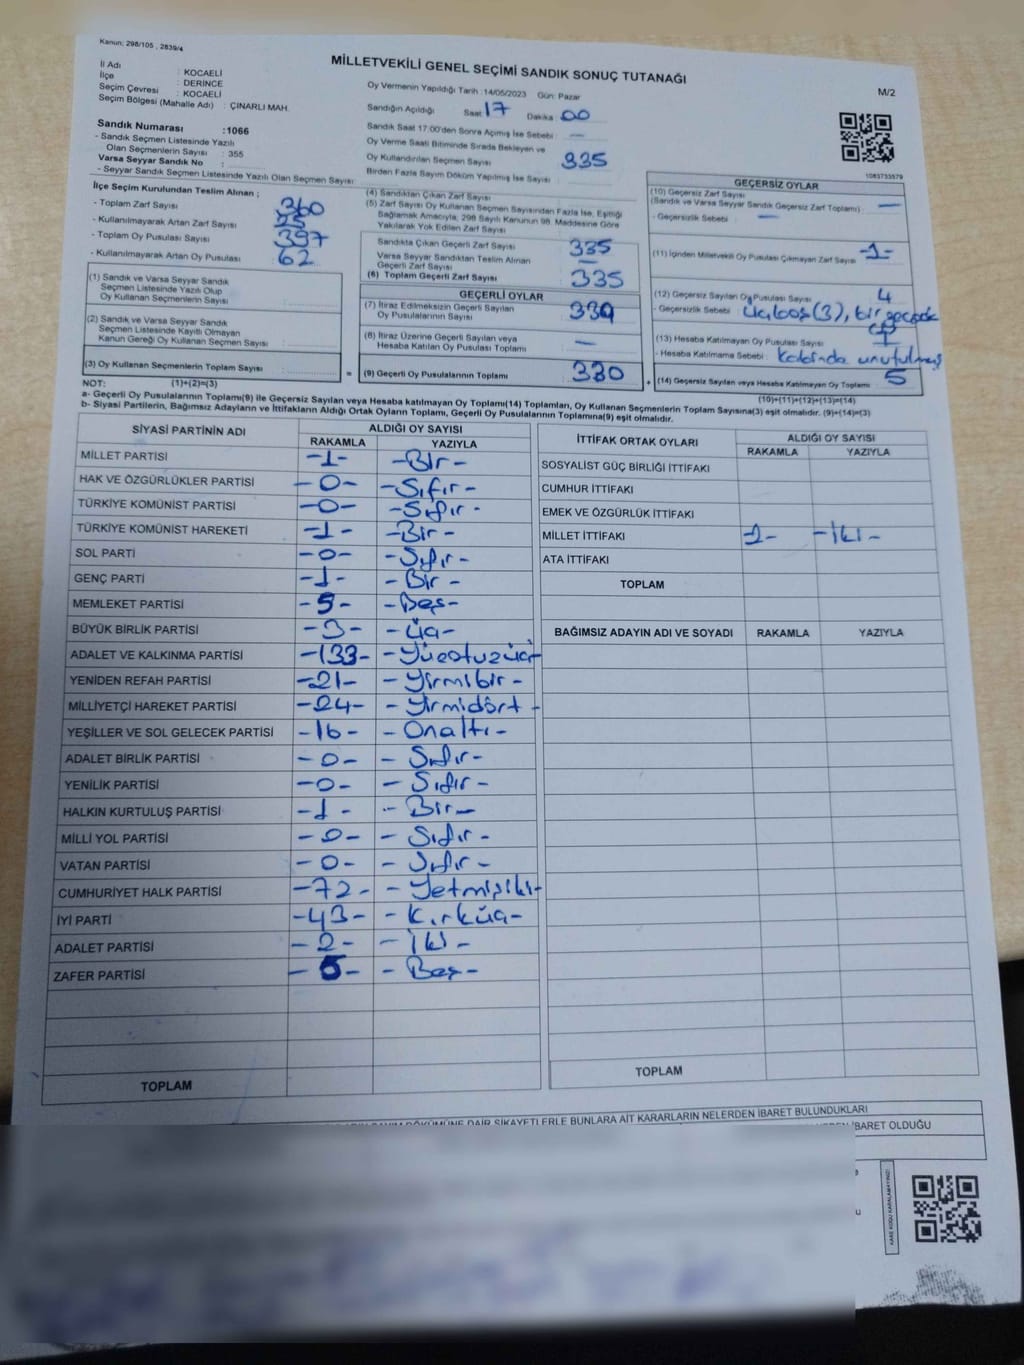 Kanun: 298/105 , 2839/4
MİLLETVEKİLİ GENEL SEÇİMİ SANDIK SONUÇ TUTANAĞI
M/2
İl Adı : KOCAELİ
İlçe : DERİNCE
Seçim Çevresi : KOCAELİ
Seçim Bölgesi (Mahalle Adı) : ÇINARLI MAH.
Sandık Numarası :1066
- Sandık Seçmen Listesinde Yazılı
Olan Seçmenlerin Sayısı : 355
Varsa Seyyar Sandık No :
- Seyyar Sandık Seçmen Listesinde Yazılı Olan Seçmen Sayısı:
Oy Vermenin Yapıldığı Tarih :14/05/2023 Gün: Pazar
Sandığın Açıldığı Saat 17 Dakika: 00
Sandık Saat 17:00'den Sonra Açımış İse Sebebi : —
Oy Verme Saati Bitiminde Sırada Bekleyen ve
Oy Kullandırılan Seçmen Sayısı 335
Birden Fazla Sayım Döküm Yapılmış İse Sayısı :
1083733579
İlçe Seçim Kurulundan Teslim Alınan ;
- Toplam Zarf Sayısı : 360
- Kullanılmayarak Artan Zarf Sayısı : 25
- Toplam Oy Pusulası Sayısı : 397
- Kullanılmayarak Artan Oy Pusulası : 62
(1) Sandık ve Varsa Seyyar Sandık
Seçmen Listesinde Yazılı Olup
Oy Kullanan Seçmenlerin Sayısı
(2) Sandık ve Varsa Seyyar Sandık
Seçmen Listesinde Kayıtlı Olmayan
Kanun Gereği Oy Kullanan Seçmen Sayısı :
(3) Oy Kullanan Seçmenlerin Toplam Sayısı
(4) Sandıktan Çıkan Zarf Sayısı
(5) Zarf Sayısı Oy Kullanan Seçmen Sayısından Fazla İse, Eşitliği
Sağlamak Amacıyla, 298 Sayılı Kanunun 98. Maddesine Göre
Yakılarak Yok Edilen Zarf Sayısı
Sandıkta Çıkan Geçerli Zarf Sayısı 335
Varsa Seyyar Sandıktan Teslim Alınan
Geçerli Zarf Sayısı —
(6) Toplam Geçerli Zarf Sayısı 335
GEÇERLİ OYLAR
(7) İtiraz Edilmeksizin Geçerli Sayılan
Oy Pusulalarının Sayısı :
(8) İtiraz Üzerine Geçerli Sayılan veya
Hesaba Katılan Oy Pusulası Toplamı —
= (9) Geçerli Oy Pusulalarının Toplamı 330
GEÇERSİZ OYLAR
(10) Geçersiz Zarf Sayısı
(Sandık ve Varsa Seyyar Sandık Geçersiz Zarf Toplamı) : —
- Geçersizlik Sebebi : —
(11) İçinden Milletvekili Oy Pusulası Çıkmayan Zarf Sayısı -1-
(12) Geçersiz Sayılan Oy Pusulası Sayısı 4
- Geçersizlik Sebebi : (3), bir
(13) Hesaba Katılmayan Oy Pusulası Sayısı
- Hesaba Katılmama Sebebi : Kabinde unutulmuş
+ (14) Geçersiz Sayılan veya Hesaba Katılmayan Oy Toplamı : 5
NOT: (1)+(2)=(3) (10)+(11)+(12)+(13)=(14)
a- Geçerli Oy Pusulalarının Toplamı(9) ile Geçersiz Sayılan veya Hesaba katılmayan Oy Toplamı(14) Toplamları, Oy Kullanan Seçmenlerin Toplam Sayısına(3) eşit olmalıdır. (9)+(14)=(3)
b- Siyasi Partilerin, Bağımsız Adayların ve İttifakların Aldığı Ortak Oyların Toplamı, Geçerli Oy Pusulalarının Toplamına(9) eşit olmalıdır.
SİYASİ PARTİNİN ADI ALDIĞI OY SAYISI
RAKAMLA YAZIYLA
MİLLET PARTİSİ -1- -Bir-
HAK VE ÖZGÜRLÜKLER PARTİSİ -0- -Sıfır-
TÜRKİYE KOMÜNİST PARTİSİ -0- -Sıfır-
TÜRKİYE KOMÜNİST HAREKETİ -1- -Bir-
SOL PARTİ -0- -Sıfır-
GENÇ PARTİ -1- -Bir-
MEMLEKET PARTİSİ -5- -Beş-
BÜYÜK BİRLİK PARTİSİ -3- -Üç-
ADALET VE KALKINMA PARTİSİ -133- -Yüzotuzüç-
YENİDEN REFAH PARTİSİ -21- -Yirmibir-
MİLLİYETÇİ HAREKET PARTİSİ -24- -Yirmidört-
YEŞİLLER VE SOL GELECEK PARTİSİ -16- -Onaltı-
ADALET BİRLİK PARTİSİ -0- -Sıfır-
YENİLİK PARTİSİ -0- -Sıfır-
HALKIN KURTULUŞ PARTİSİ -1- -Bir-
MİLLİ YOL PARTİSİ -0- -Sıfır-
VATAN PARTİSİ -0- -Sıfır-
CUMHURİYET HALK PARTİSİ -72- -Yetmişiki-
İYİ PARTİ -43- -Kırküç-
ADALET PARTİSİ -2- -İki-
ZAFER PARTİSİ -5- -Beş-
TOPLAM
İTTİFAK ORTAK OYLARI ALDIĞI OY SAYISI
RAKAMLA YAZIYLA
SOSYALİST GÜÇ BİRLİĞİ İTTİFAKI
CUMHUR İTTİFAKI
EMEK VE ÖZGÜRLÜK İTTİFAKI
MİLLET İTTİFAKI -2- -İki-
ATA İTTİFAKI
TOPLAM
BAĞIMSIZ ADAYIN ADI VE SOYADI RAKAMLA YAZIYLA
TOPLAM
DÖKÜMÜNE DAİR ŞİKAYETLERLE BUNLARA AİT KARARLARIN NELERDEN İBARET BULUNDUKLARI
İBARET OLDUĞU
KARE KODU KARALAMAYINIZ!